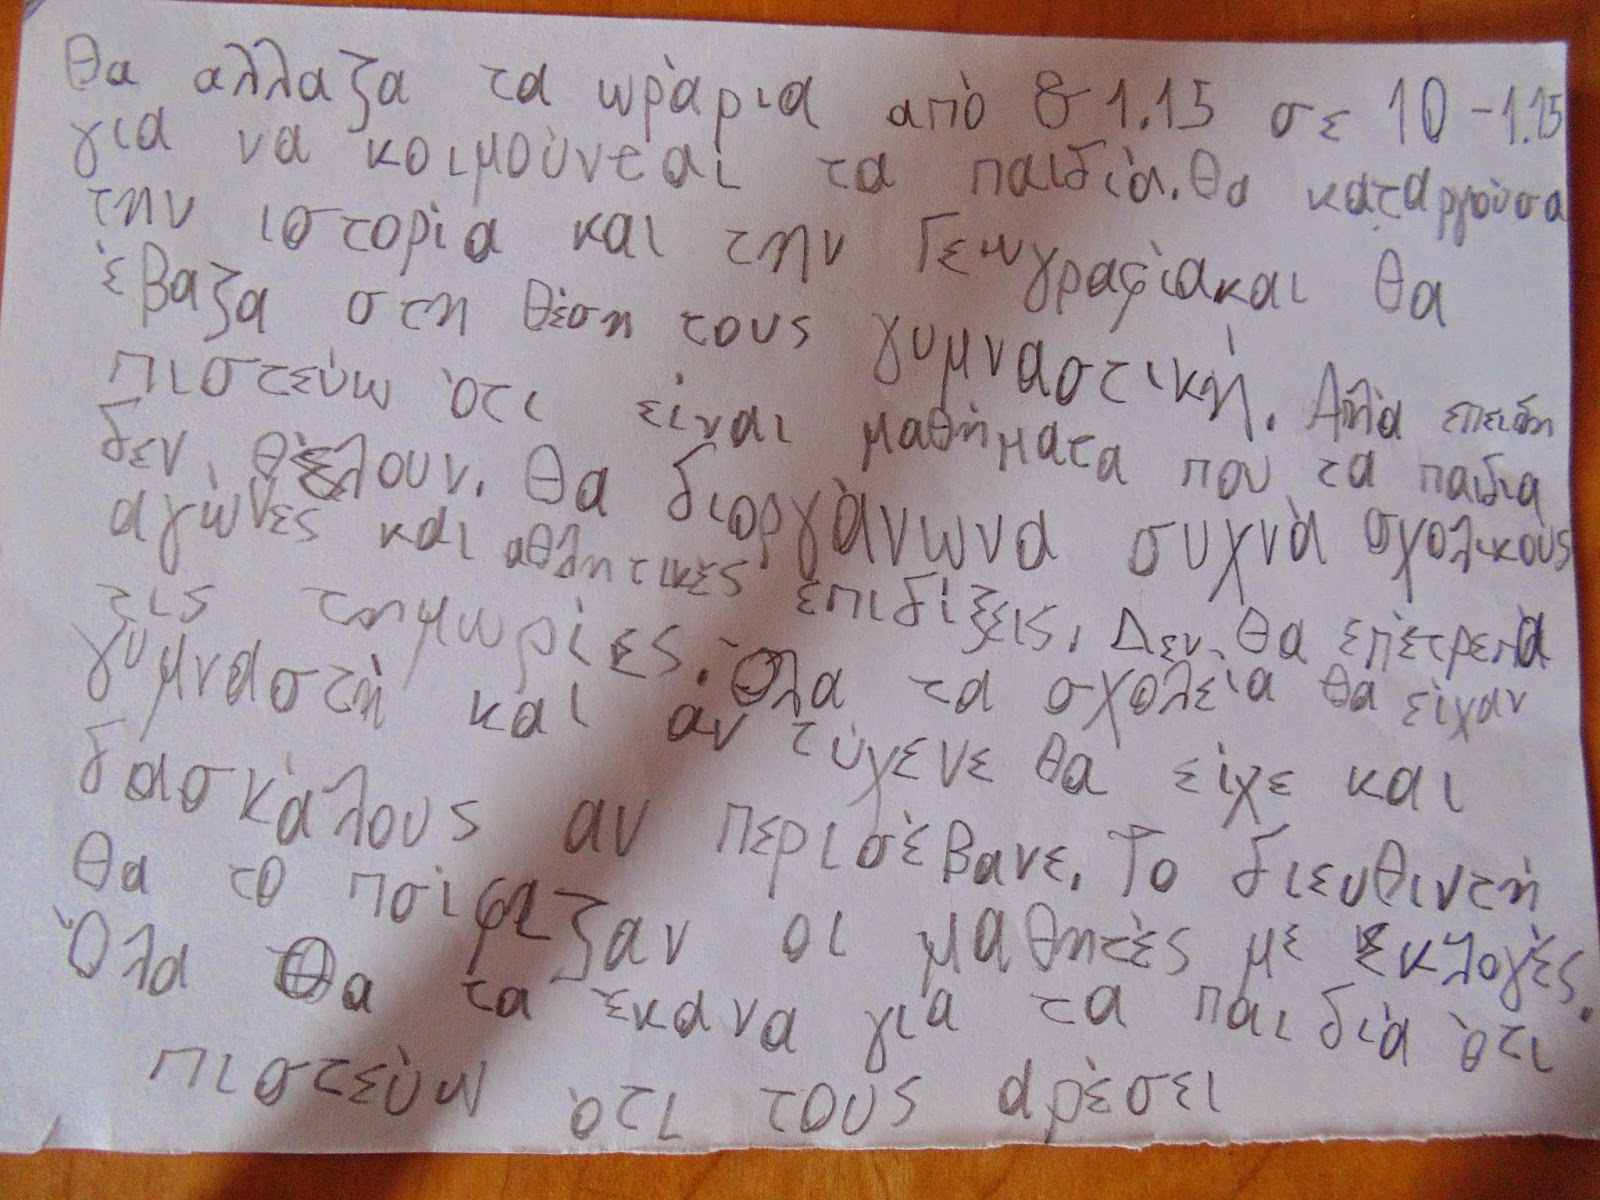 θα αλλαζα τα ωράρια από 8-1.15 σε 10-1.15
για να κοιμούνται τα παιδιά. θα καταργούσα
την ιστορία και την Γεωγραφία και θα
έβαζα στη θέση τους γυμναστική. Αλλά επειδη
πιστεύω ότι είναι μαθήματα που τα παιδια
δεν θέλουν. Θα διοργάνωνα συχνά σχολικούς
αγώνες και αθλητικές επιδίξεις. Δεν θα επέτρεπα
τις τημωρίες. Όλα τα σχολεία θα είχαν
γυμναστή και αν τύγενε θα είχε και
δασκάλους αν περισέβανε. Το διευθιντή
θα το ποίφιζαν οι μαθητές με εκλογές.
Όλα θα τα έκανα για τα παιδιά ότι
πιστεύω ότι τους αρέσει